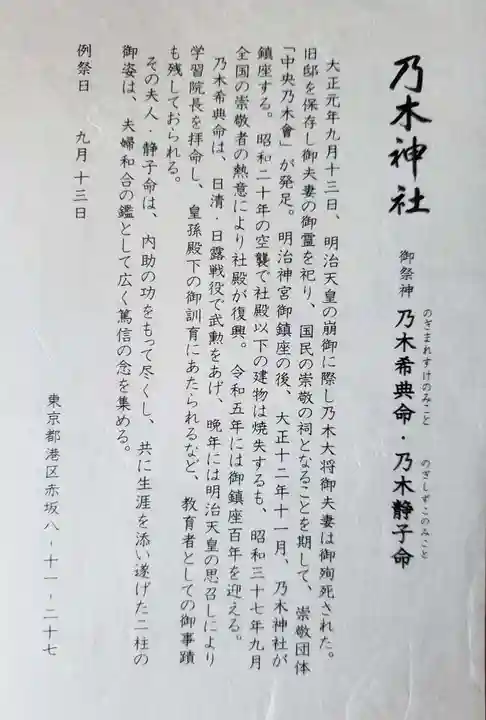 乃木神社
御祭神 乃木希典命・乃木静子命
のぎまれすけのみこと
のぎしずこのみこと
大正元年九月十三日、明治天皇の崩御に際し乃木大将御夫妻は御殉死された。
旧邸を保存し御夫妻の御霊を祀り、国民の崇敬の祠となることを期して、崇敬団体
「中央乃木會」が発足。明治神宮御鎮座の後、大正十二年十一月、乃木神社が
鎮座する。昭和二十年の空襲で社殿以下の建物は焼失するも、昭和三十七年九月
全国の崇敬者の熱意により社殿が復興。令和五年には御鎮座百年を迎える。
乃木希典命は、日清・日露戦役で武勲をあげ、晩年には明治天皇の思召しにより
学習院長を拝命し、皇孫殿下の御訓育にあたられるなど、教育者としての御事蹟
も残しておられる。
その夫人・静子命は、内助の功をもって尽くし、共に生涯を添い遂げた二柱の
御姿は、夫婦和合の鑑として広く篤信の念を集める。
例祭日 九月十三日
東京都港区赤坂八-十一-二十七